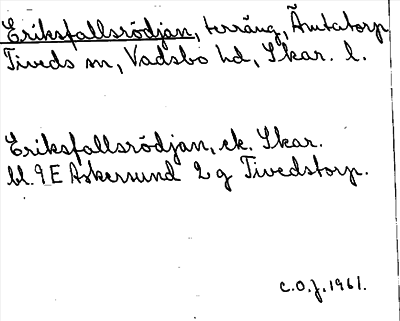 Eriksfallsrödjan, terräng, Åmtatorp
Tiveds sn, Vadsbo hd, Skar. l.
Eriksfallsrödjan, ek. Skar.
bl. 9E Askersund 2g Tivedstorp.
C.O.J. 1961.